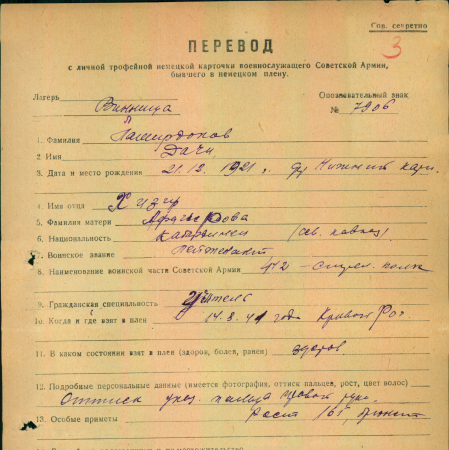 Сов. секретно
3
ПЕРЕВОД
с личной трофейной немецкой карточки военнослужащего Советской Армии,
бывшего в немецком плену.
Лагерь Винница
Опознавательный знак
№ 7906
1. Фамилия
2. Имя
3. Дата и место рождения 21.12. 1921 г.
4. Имя отца
5. Фамилия матери
6. Национальность (сев. кавказ)
7. Воинское звание лейтенант
8. Наименование воинской части Советской Армии 472 – стрел. полк
9. Гражданская специальность Учитель
10. Когда и где взят в плен 14.8.41 года Кривой Рог
11. В каком состоянии взят в плен (здоров, болен, ранен) здоров
12. Подробные персональные данные (имеется фотография, оттиск пальцев, рост, цвет волос)
Оттиск указ. пальца правой руки.
13. Особые приметы Рост 167,